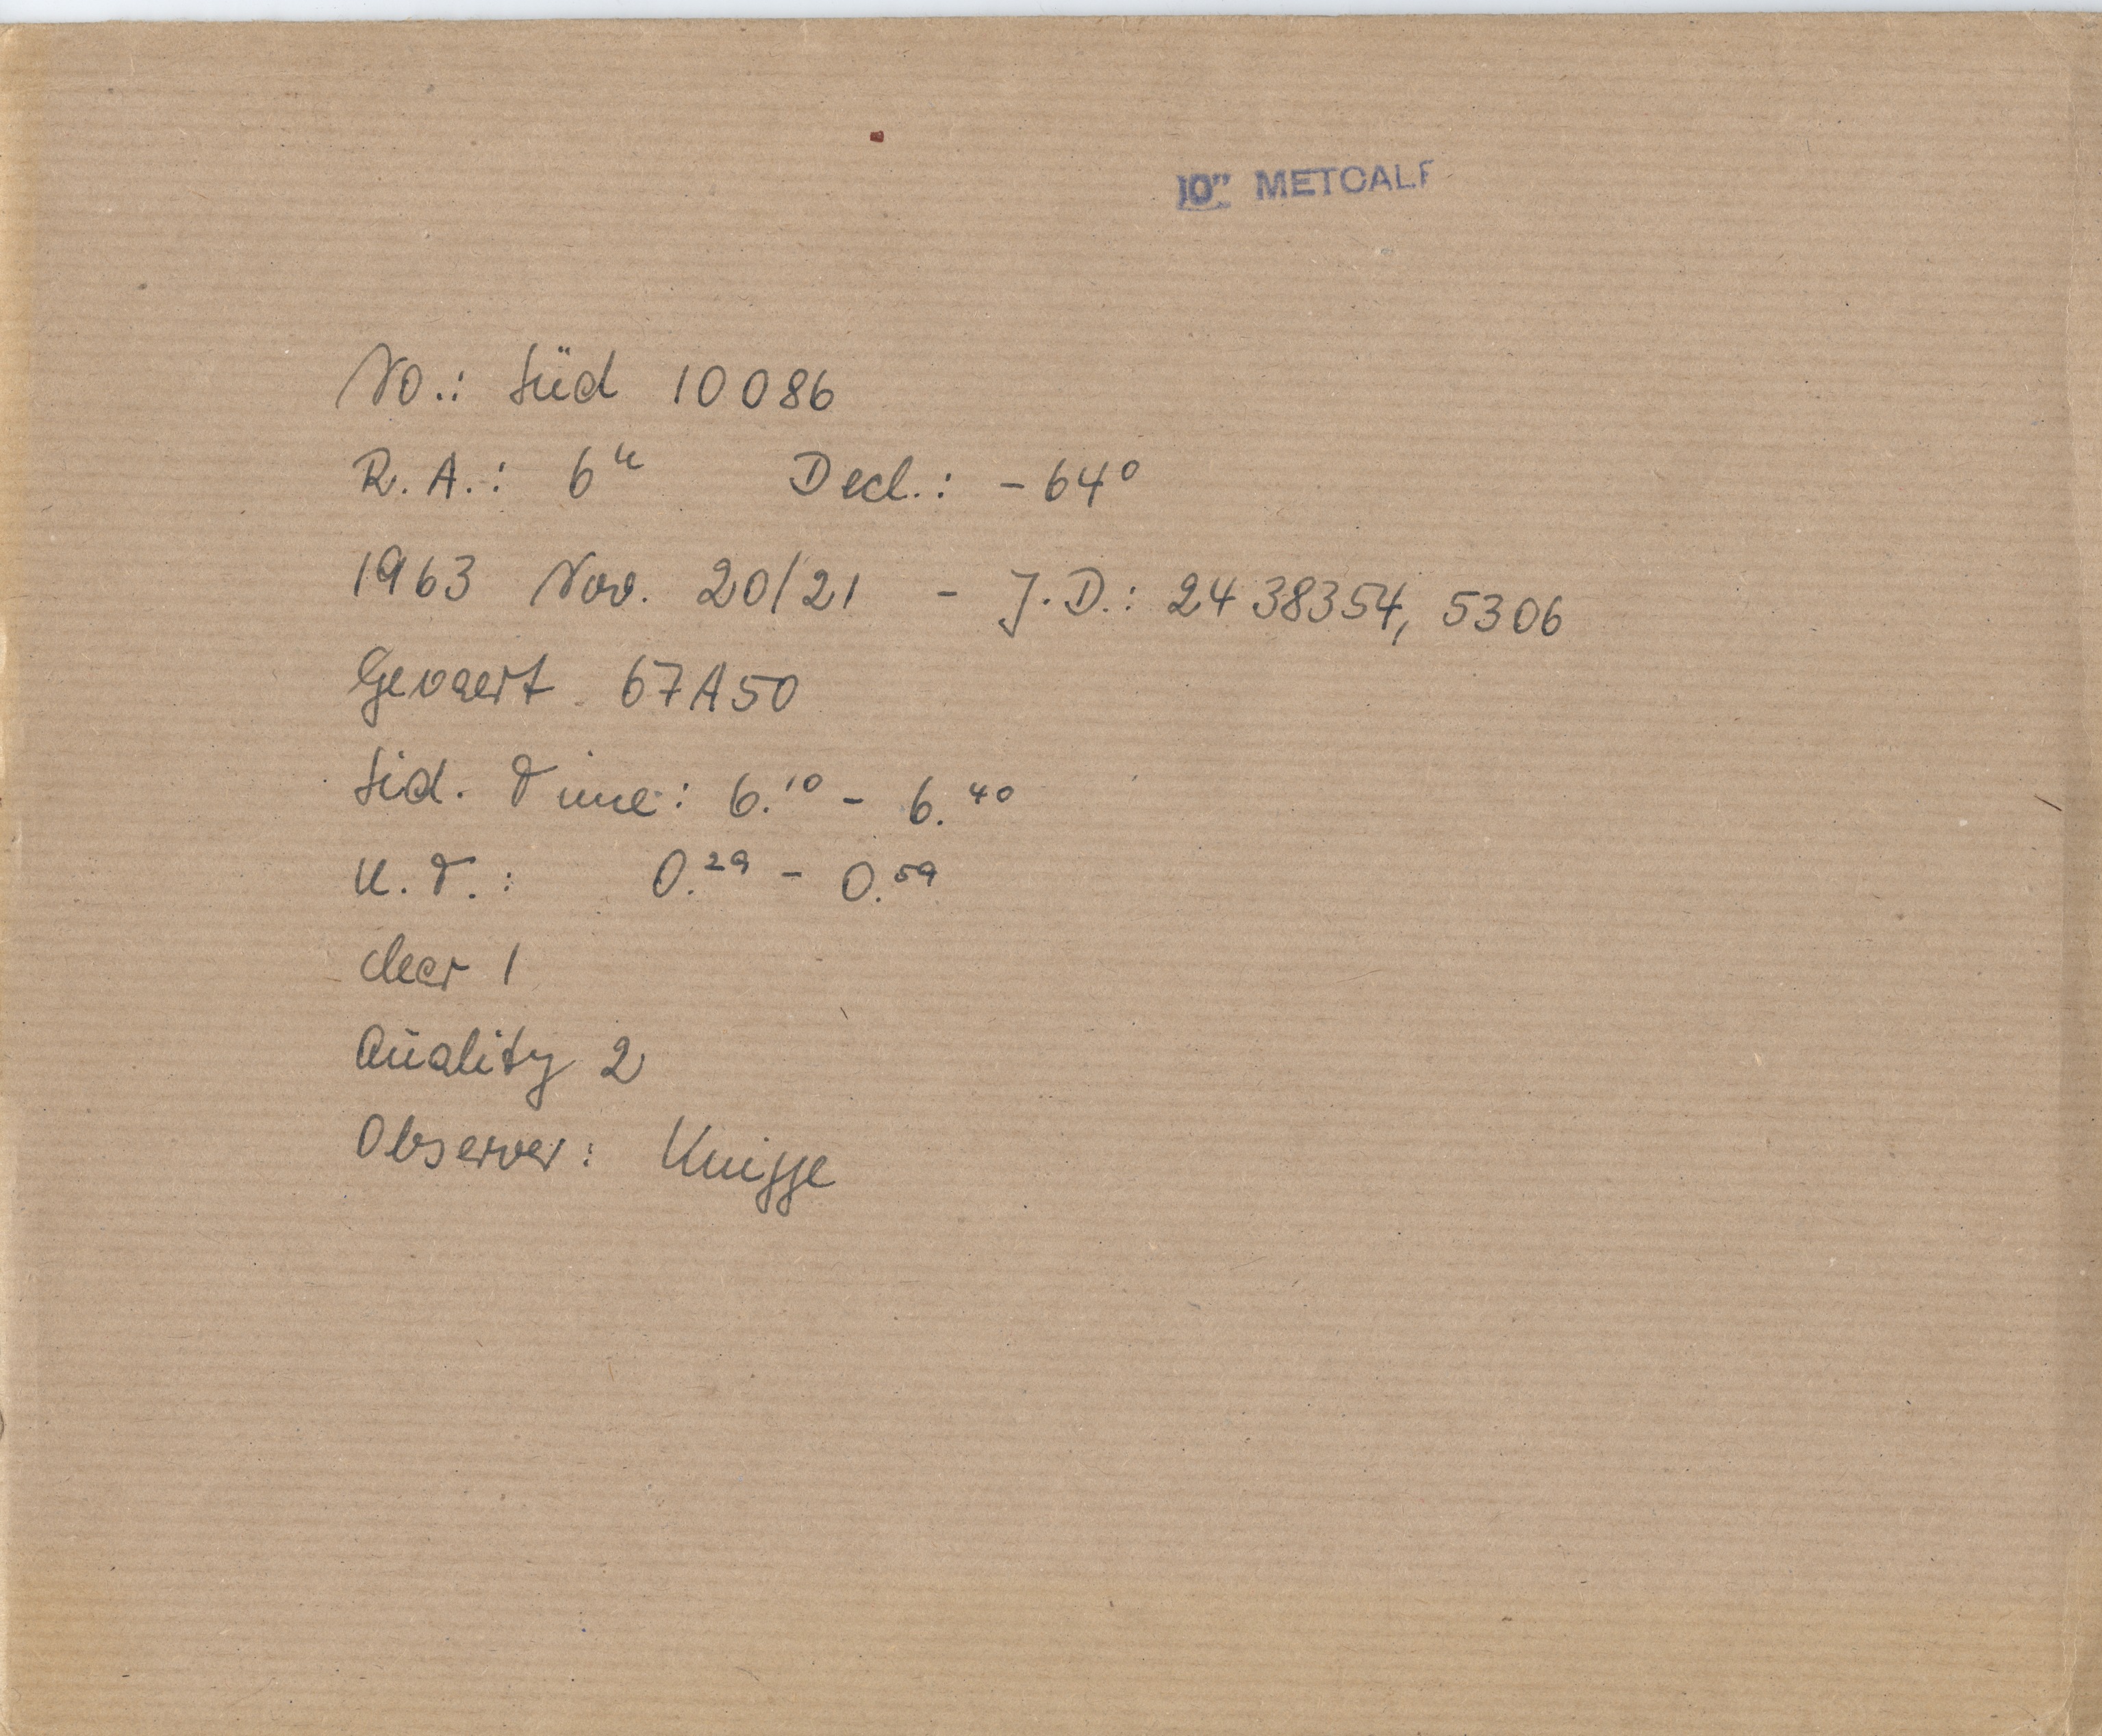 10" METCALF
No.: Süd 10086
R.A.: 6ʰ Decl.: -64°
1963 Nov. 20/21 - J.D.: 2438354, 5306
Gevaert 67A50
Sid. Time: 6.¹⁰ - 6.⁴⁰
U.T.: 0.²⁹ - 0.⁵⁹
clear 1
Quality 2
Observer: Knigge